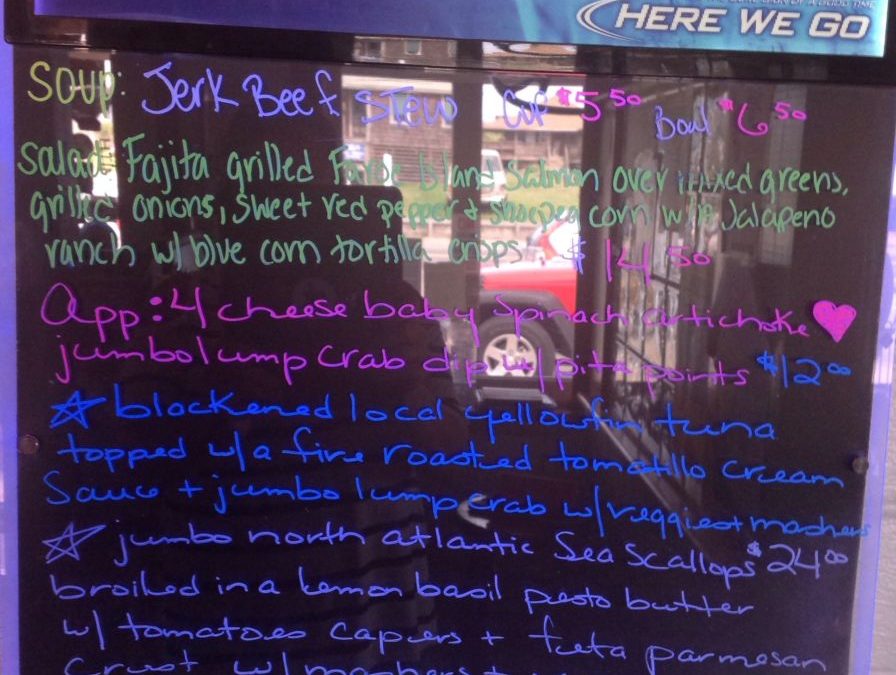 HERE WE GO
Soup: Jerk Beef Stew Cup $5.50 Bowl $6.50
Salad: Fajita grilled Faroe Island Salmon over mixed greens,
grilled onions, sweet red pepper & shoepeg corn w/a Jalapeno
ranch w/ blue corn tortilla crisps $14.50
App: 4 cheese baby Spinach artichoke ♥
jumbo lump crab dip w/ pita points $12.00
☆ blackened local yellowfin tuna
topped w/ a fire roasted tomatillo cream
Sauce + jumbo lump crab w/ veggies + mashers
☆ jumbo north atlantic Sea Scallops $24.00
broiled in a lemon basil pesto butter
w/ tomatoes capers + feta parmesan
crust w/ mashers +